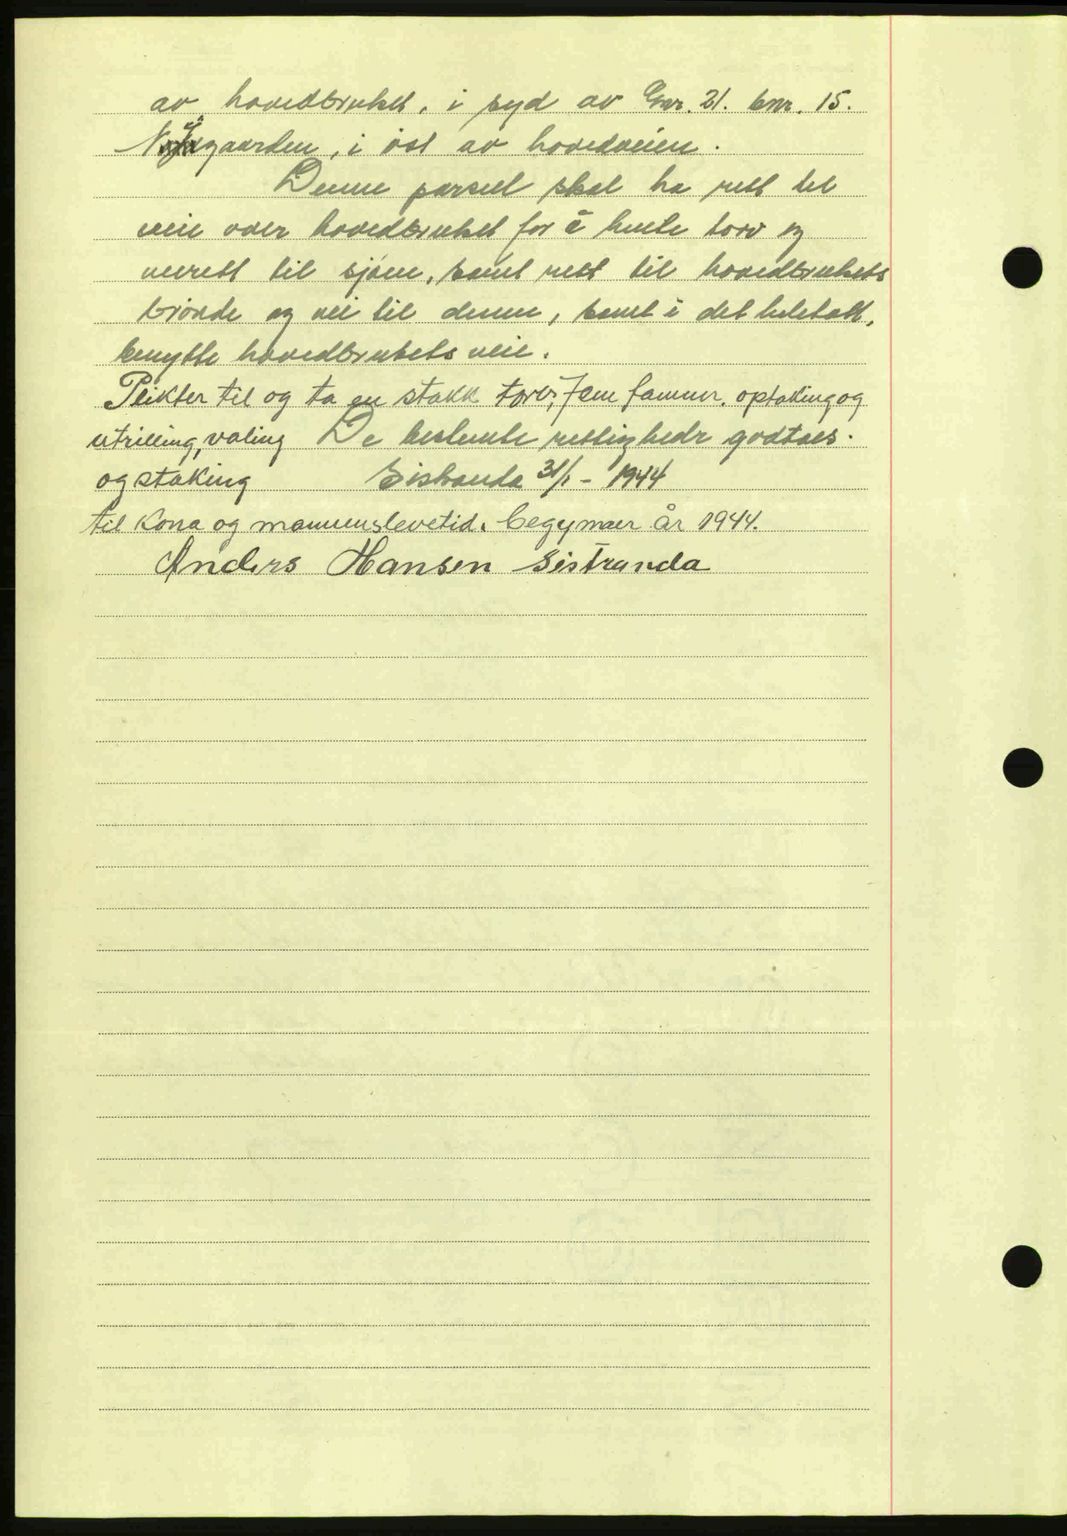 av hovedbruket, i syd av Gnr. 21. bnr. 15.
gaarden, i øst av hovedveien.
Denne parsel skal ha rett til
veie over hovedbruket for å hente torv og
veirett til sjøen, samt rett til hovedbrukets
brønde og vei til denne, samt i det heletatt,
benytte hovedbrukets veie.
Plikter til og ta en stakk torv, fem famner, optaking og
utrilling, valing De bestemte rettigheder godtaes.
og staking Sistranda 31/1 - 1944
til Kona og mannens levetid. begynner år 1944.
Anders Hansen Sistranda